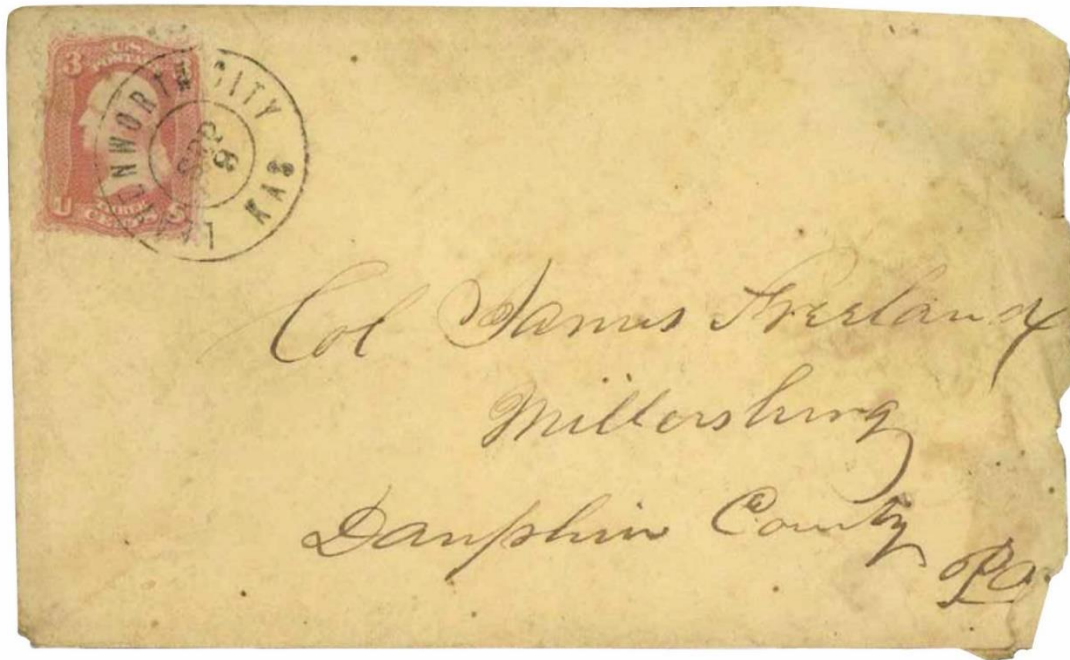 U.S. POSTAGE
3
THREE CENTS
U S
LEAVENWORTH CITY KAS
9
Col James Freeland
Millersburg
Dauphin County
Pa